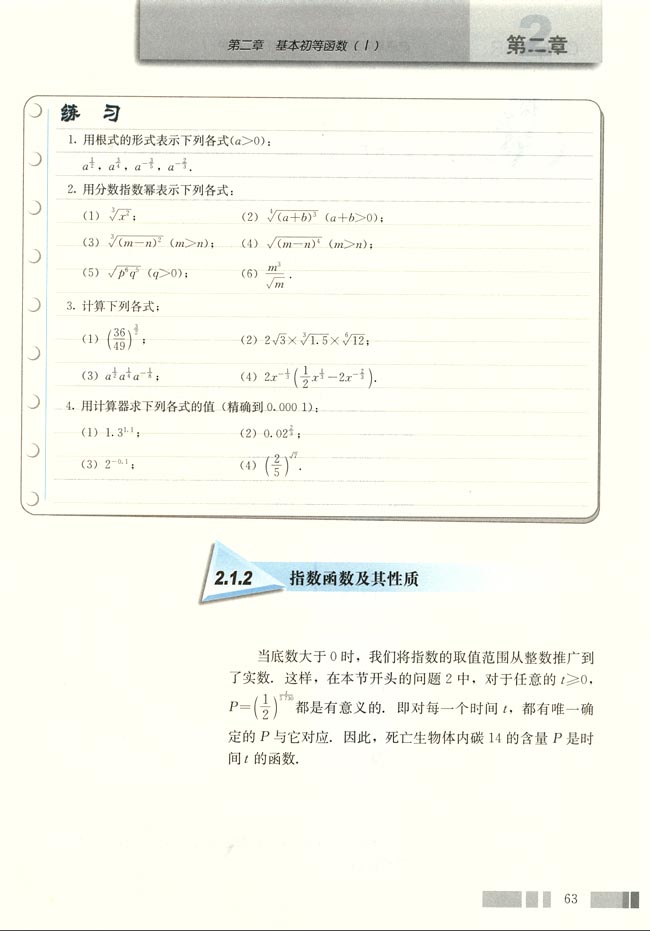 第二章 基本初等函数（Ⅰ）
2
第二章
练 习
1. 用根式的形式表示下列各式(a>0)：
a^{1/2}，a^{3/4}，a^{-3/5}，a^{-2/3}．
2. 用分数指数幂表示下列各式：
(1) ∛(x²)； (2) ∜((a+b)³) (a+b>0)；
(3) ∛((m−n)²) (m>n)； (4) √((m−n)⁴) (m>n)；
(5) √(p⁶q⁵) (q>0)； (6) m³/√m．
3. 计算下列各式：
(1) (36/49)^{3/2}； (2) 2√3×∛1.5×⁶√12；
(3) a^{1/2}a^{1/4}a^{-1/8}； (4) 2x^{-1/3}(½x^{1/3}−2x^{-2/3})．
4. 用计算器求下列各式的值（精确到0.000 1）：
(1) 1.3^{1.1}； (2) 0.02^{2/3}；
(3) 2^{-0.1}； (4) (2/5)^{√7}．
2.1.2 指数函数及其性质
当底数大于0时，我们将指数的取值范围从整数推广到
了实数．这样，在本节开头的问题2中，对于任意的 t≥0，
P=(1/2)^{t/5730}都是有意义的．即对每一个时间 t，都有唯一确
定的 P 与它对应．因此，死亡生物体内碳14的含量 P 是时
间 t 的函数．
63